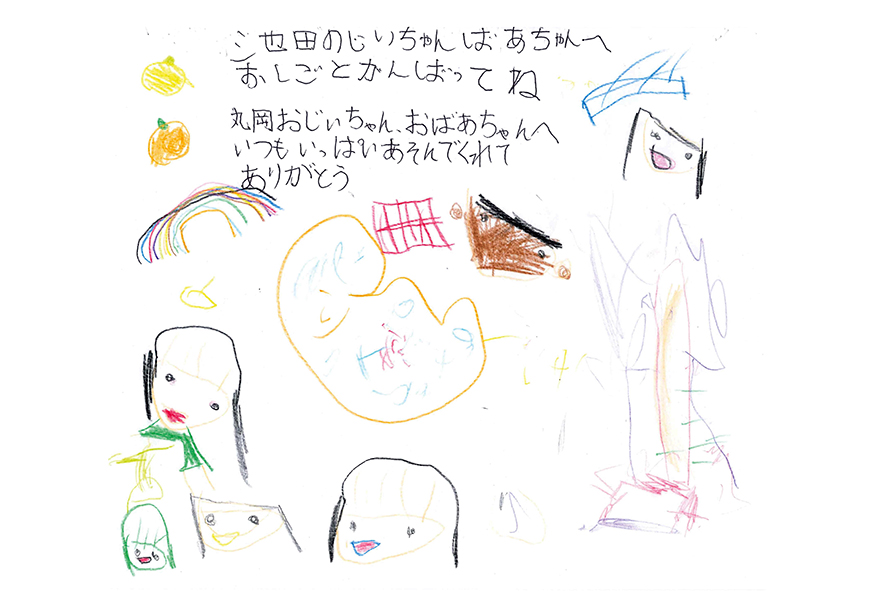 池田のじいちゃんばあちゃんへ
おしごとがんばってね
丸岡おじいちゃん、おばあちゃんへ
いつもいっぱいあそんでくれて
ありがとう